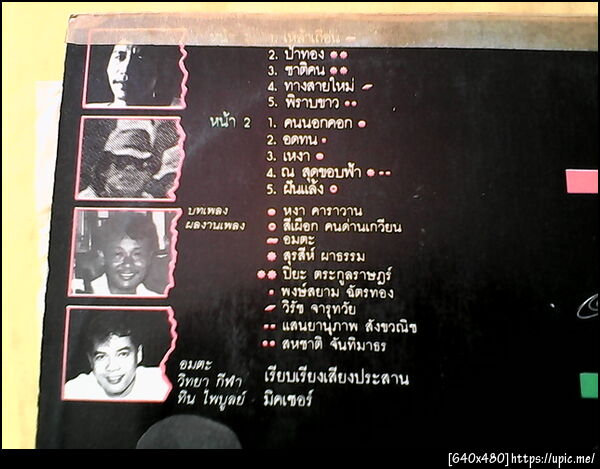 1. เหล้าเถื่อน
2. ป่าทอง
3. ชาติคน
4. ทางสายใหม่
5. พิราบขาว
หน้า 2 1. คนนอกคอก
2. อดทน
3. เหงา
4. ณ สุดขอบฟ้า
5. ฝนแล้ง
บทเพลง หงา คาราวาน
ผลงานเพลง สีเผือก คนด่านเกวียน
อมตะ
สุรสีห์ ผาธรรม
ปิยะ ตระกูลราษฎร์
พงษ์สยาม ฉัตรทอง
วิรัช จารุทวัย
แสนยานุภาพ สังขวณิช
สหชาติ จันทิมาธร
อมตะ
วิทยา กีฬา เรียบเรียงเสียงประสาน
ทีน ไพบูลย์ มิคเซอร์
[640x480]https://upic.me/